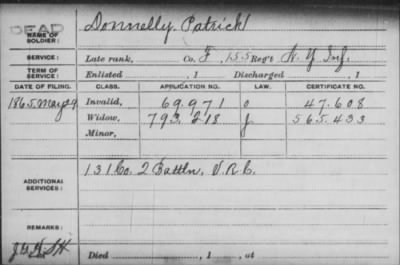 DEAD
NAME OF SOLDIER: Donnelly, Patrick
SERVICE: Late rank, Co. F, 155 Reg't N. Y. Inf.
TERM OF SERVICE: Enlisted , 1 Discharged , 1
DATE OF FILING. CLASS. APPLICATION NO. LAW. CERTIFICATE NO.
1865, May 29. Invalid, 69.971 47.608
Widow, 793.218 565.433
Minor,
ADDITIONAL SERVICES: 131 Co. 2 Battln. V.R.C.
REMARKS:
Died , 1 , at